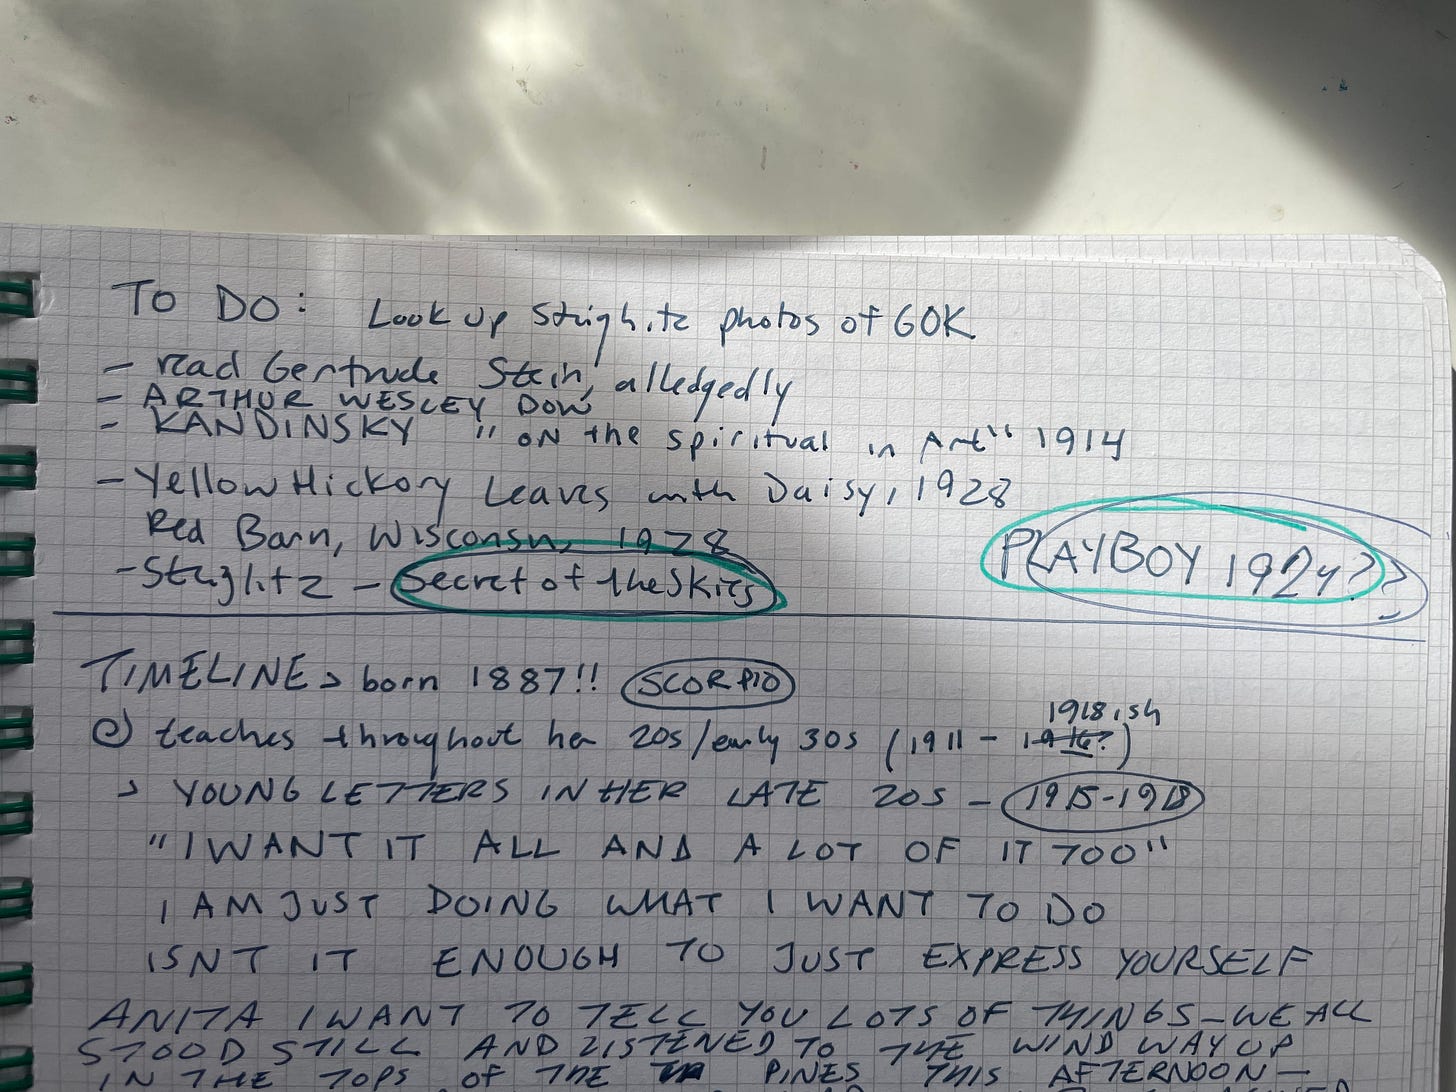 TO DO: Look up Strighitz photos of GOK
- read Gertrude Stein, alledgedly
- ARTHUR WESLEY DOW
- KANDINSKY "ON the spiritual in Art" 1914
- Yellow Hickory Leaves with Daisy, 1928
Red Barn, Wisconsin, 1928
PLAYBOY 1924??
- Steiglitz - Secret of the Skies
TIMELINE > born 1887!! SCORPIO
1918ish
teaches throughout her 20s/early 30s (1911 - 1916?)
> YOUNG LETTERS IN HER LATE 20S - 1915-1918
"I WANT IT ALL AND A LOT OF IT TOO"
I AM JUST DOING WHAT I WANT TO DO
ISNT IT ENOUGH TO JUST EXPRESS YOURSELF
ANITA I WANT TO TELL YOU LOTS OF THINGS - WE ALL
STOOD STILL AND LISTENED TO THE WIND WAY UP
IN THE TOPS OF THE PINES THIS AFTERNOON -